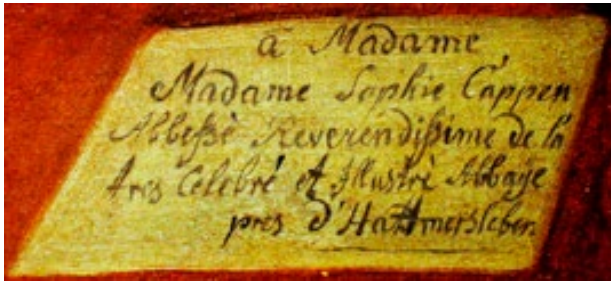 à Madame,
Madame Sophie Cappen
Abbeßè Reverendißime de la
tres Celebré et Illustrè Abbaye
pres d'Hattmersleben